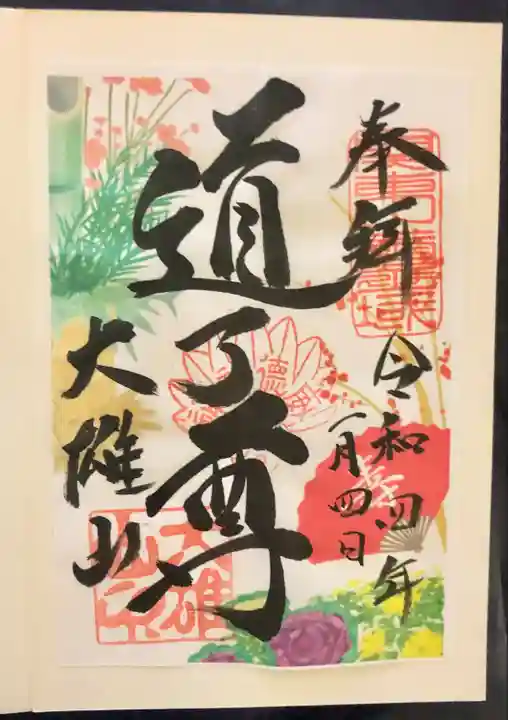 奉拜
令和四年
一月四日
道了尊
大雄山
大雄
山印